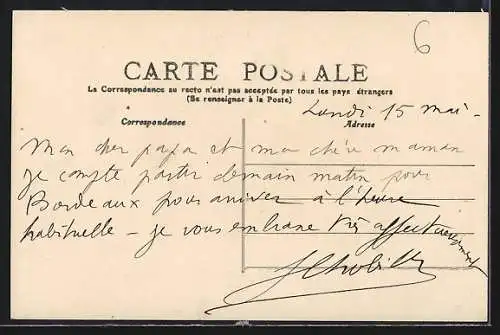 6
CARTE POSTALE
La Correspondance au recto n'est pas acceptée par tous les pays étrangers
(Se renseigner à la Poste)
Lundi 15 Mai -
Correspondance
Adresse
Mon cher papa et ma chère maman
je compte partir demain matin pour
Bordeaux pour arriver à l'heure
habituelle - je vous embrasse très affectueusement